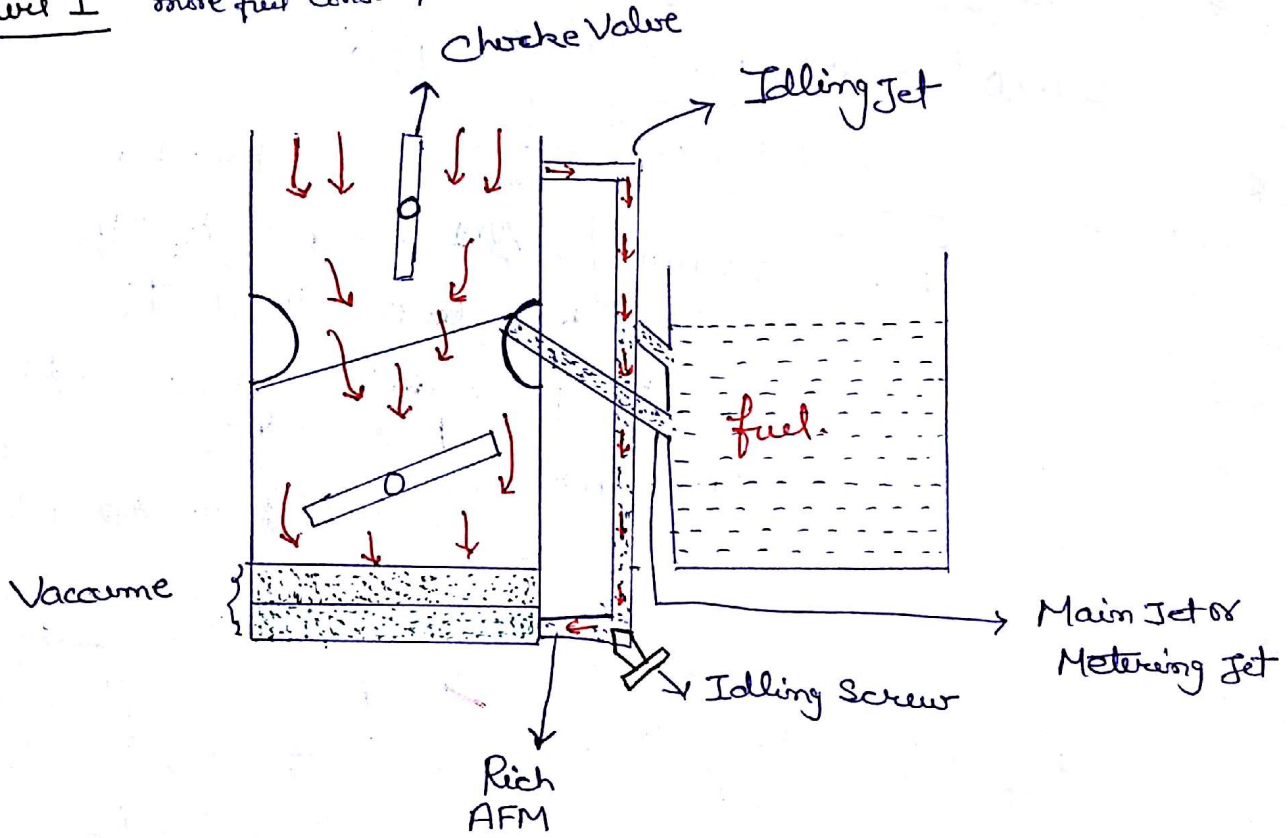 I more fuel
Chocke Valve
Idling Jet
fuel.
Vaccume
Main Jet or
Metering Jet
Idling Screw
Rich
AFM